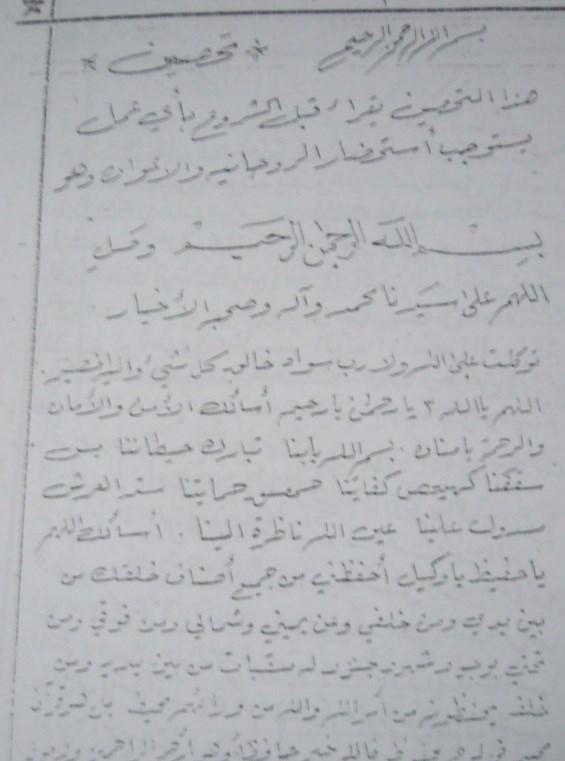 بسم الله الرحمن الرحيم * تحصين *
هذا التحصين يقرأ قبل الشروع بأي عمل
يستوجب أستحضار الروحانيه والاعوان وهو
بسم الله الرحمن الرحيم وصل
اللهم على سيدنا محمد وآله وصحبه الأخيار
توكلت على الله ولا رب سواه خالق كل شيئ واليه المصير .
اللهم يا الله ٣ يا رحمن يا رحيم أسألك الأمن والأمان
والرحمة يا منان . بسم الله بابنا تبارك حيطاننا يس
سقفنا كهيعص كفايتنا حمعسق حمايتنا ستر العرش
مسبول علينا عين الله ناظرة الينا . أسألك اللهم
يا حفيظ يا وكيل أحفظني من جميع أصناف خلقك من
بين يدي ومن خلفي وعن يميني وشمالي ومن فوقي ومن
تحتي له معقبات من بين يديه ومن
خلفه يحفظونه من أمر الله والله من ورائهم محيط بل هو قرآن
مجيد في لوح محفوظ فالله خير حافظا وهو أرحم الراحمين